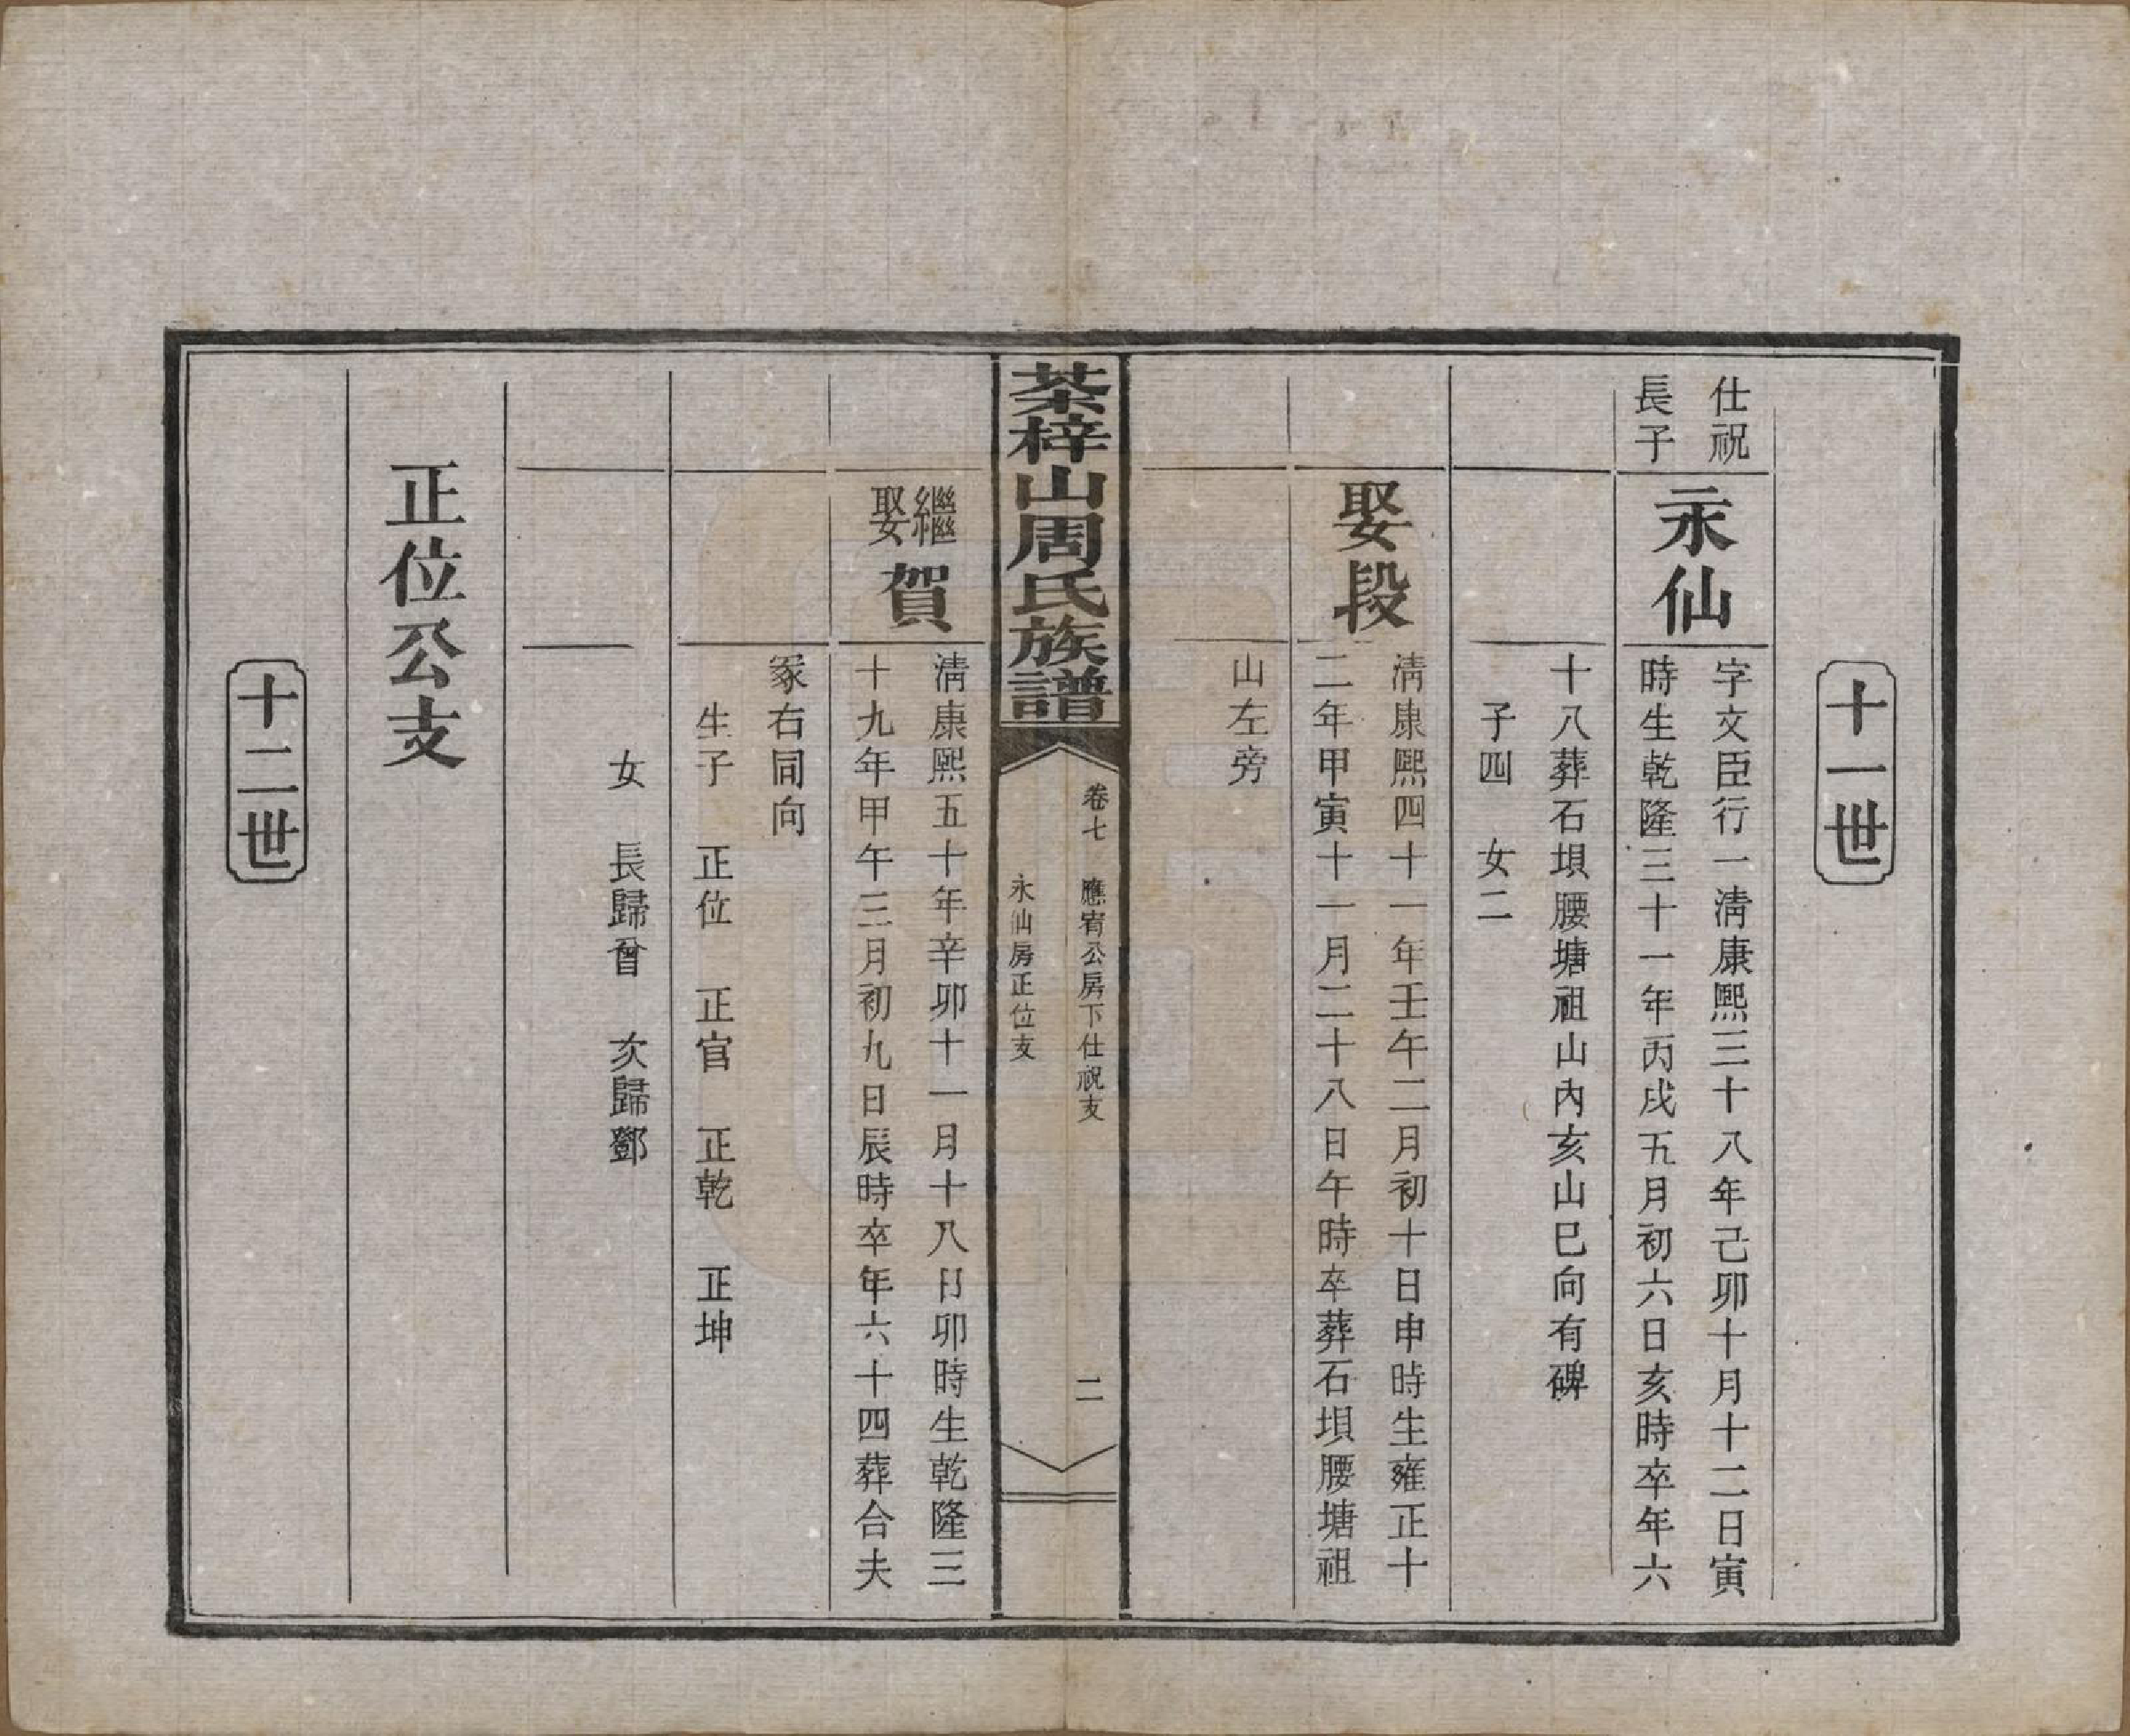 十一世
仕祝
長子
永仙
字文臣行一淸康熙三十八年己卯十月十二日寅
時生乾隆三十一年丙戌五月初六日亥時卒年六
十八葬石垻腰塘祖山內亥山巳向有碑
子四　女二
娶段
淸康熙四十一年壬午二月初十日申時生雍正十
二年甲寅十一月二十八日午時卒葬石垻腰塘祖
山左旁
茶梓山周氏族譜
卷七　應宥公房下仕祝支
永仙房正位支
二
繼
娶
賀
淸康熙五十年辛卯十一月十八日卯時生乾隆三
十九年甲午三月初九日辰時卒年六十四葬合夫
冢右同向
生子　正位　正官　正乾　正坤
女　長歸曾　次歸鄧
正位公支
十二世